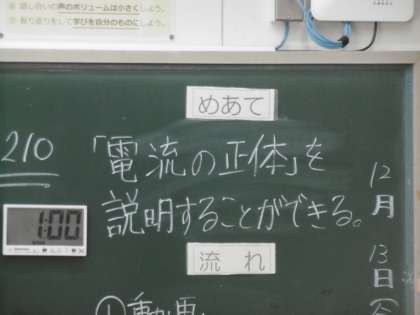 話し合いの声のボリュームは小さくしよう。
振り返りをして学びを自分のものにしよう。
めあて
210
「電流の正体」を
説明することができる。
1:00
流れ
12
月
13
日
①動画